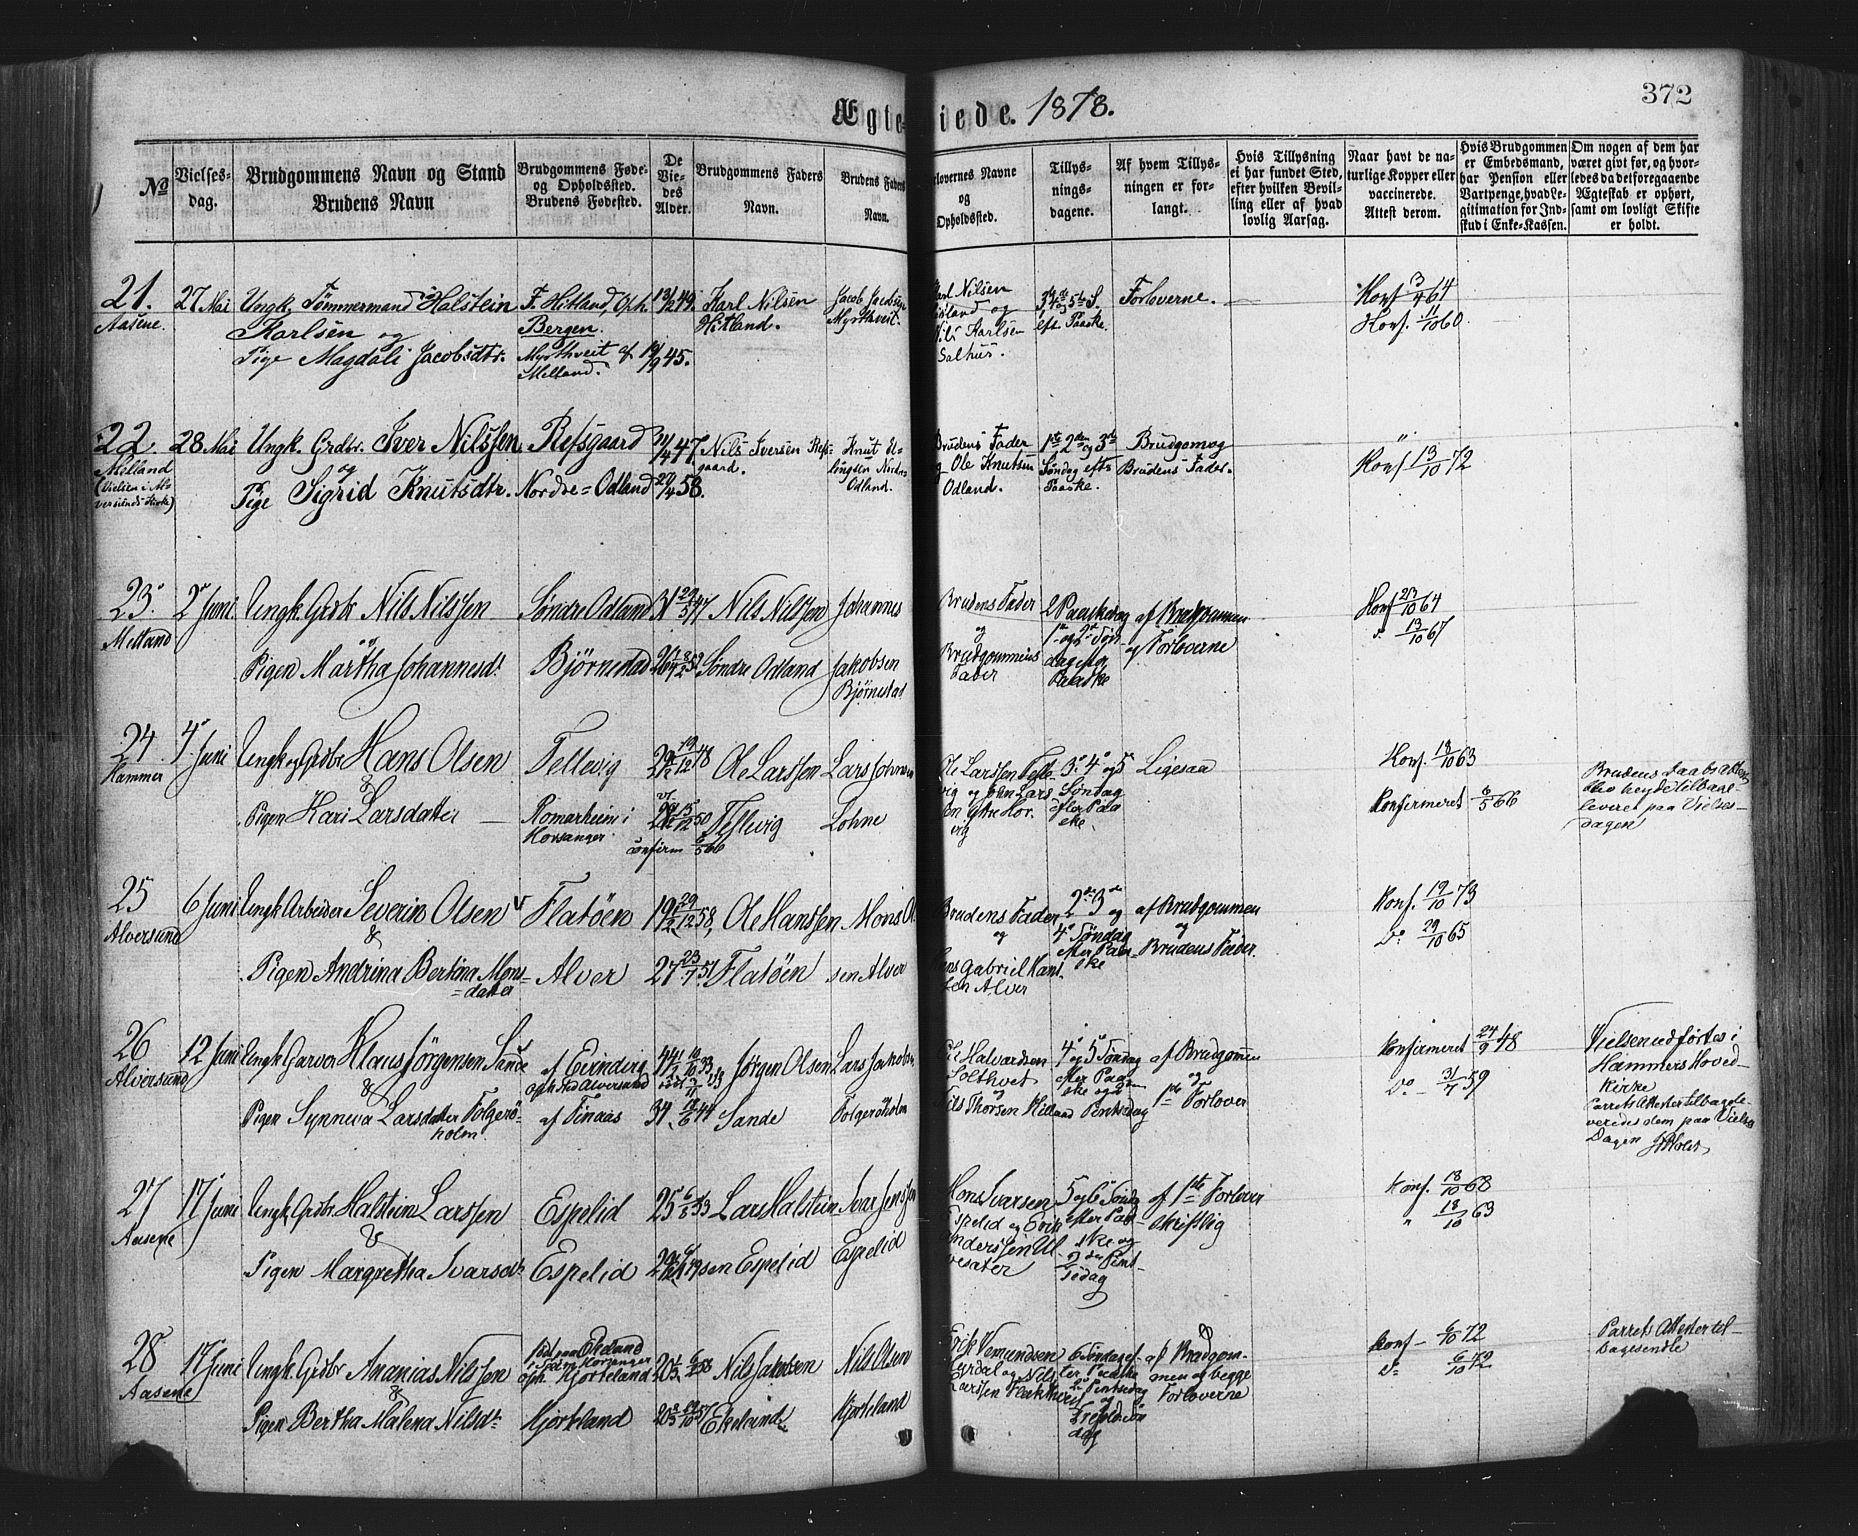 Ægteviede. 1878.
372
No
Vielses-
dag.
Brudgommens Navn og Stand
Brudens Navn
Brudgommens Føde-
og Opholdssted.
Brudens Fødested.
De
Vie-
des
Alder.
Brudgommens Faders
Navn.
Brudens Faders
Navn.
Forlovernes Navne
og
Opholdssted.
Tillys-
nings-
dagene.
Af hvem Tillys-
ningen er for-
langt.
Hvis Tillysning
ei har fundet Sted,
efter hvilken Bevil-
ling eller af hvad
lovlig Aarsag.
Naar havt de na-
turlige Kopper eller
vaccinerede.
Attest derom.
Hvis Brudgommen
er Embedsmand,
har Pension eller
Vartpenge, hvad Le-
gitimation for Ind-
skud i Enke-Kassen.
Om nogen af dem har
været givt før, og hvor-
ledes da det foregaaende
Ægteskab er ophørt,
samt om lovligt Skifte
er holdt.
21.
Aasene.
27 Mai
Ungk. Tømmermand Halstein
Karlsen og
Pige Magdali Jacobsdtr.
F. Hitland, Oph.
Bergen.
Myrthveit af
Melland.
13/12 49.
19/9 45.
Karl Nilsen
Hitland.
Jacob Jacobsen
Myrthveit.
Karl Nilsen
Hitland og
Nils Karlsen
Salhus.
3die 4de og 5te S.
eft. Paaske.
Forloverne.
Konf 3/4 64
Konf. 11/10 60
22.
Melland
(Vielsen i Al-
versunds Kirke)
28 Mai
Ungk. Grdbr. Iver Nilssen
og
Pige Sigrid Knutsdtr.
Refsgaard
Nordre-Odland
14/4 47.
27/4 58.
Nils Iversen Refs-
gaard.
Knut El-
lingsen Nordre
Odland.
Brudens Fader
og Ole Knutsen
Odland.
1ste 2den og 3die
Søndag eft.
Paaske.
Brudgom og
Brudens Fader.
"
Konf 13/10 72
23.
Melland
2 Juni
Ungk. Grdbr Nils Nilssen
og
Pigen Martha Johannesd.
Søndre Odland
Bjørnestad
31 29/3 47
Nils Nilssen
Søndre Odland
Johannes
Jakobsen
Bjørnestad
Brudens Fader
og
Brudgommens
Fader
2 Paaskedag
1ste og 2d Søn-
dag efter
Paaske
af Brudgommen
og Forloverne
Konf 23/10 64
d. 13/10 67
24
Hammer
4 Juni
Ungk og Grdbr Hans Olsen
&
Pigen Kari Larsdatter
Tellevig
Romarheim i
Hosanger
29 1/2 19/12 48
15/12 50
confirm 6/5 66
Ole Larssen
Tellevig
Lars Johnsen
Lohne
Ole Larssen Telle-
vig og John Lars
3. 4 og 5
Søndag
efter Paa
ske.
Ligesaa
Konf. 18/10 63
Konfirmeret 6/5 66
Brudens Daabsattest
blev heyde tilbage-
leveret paa Vielses-
dagen
25
Alversund
6 Juni
Ungk Arbeider Severin Olsen
&
Pigen Andrina Bertina Mons-
datter
Flatøen
Alver
19 1/2 29/12 58,
27 23/7 51
Ole Hanssen
Flatøen
Mons Ol-
sen Alver
Brudens Fader
og
Hans Gabriel Hans-
sen Alver
2den 3die og
4 Søndag
efter Paa-
ske
af Brudgommen
og
Brudens Fader.
Konf. 19/10 73
Do 29/10 65
26
Alversund
12 Juni
Ungk Garver Klaus Jørgensen Sande
&
Pigen Synneva Larsdatter Tolgerø-
holm.
af Evindvig
oph. sted Alversund
af Finaas
44 1/2 10/10 33
34 12/6 44
Jørgen Olsen
Sande
Lars Jakobsen
Tolgerøholm
Ole Halvardsen
Solthvet
og
Nils Thorsen Hilland
4 og 5 Søndag
efter Paa-
ske og 2
Pintsedag
af Brudgommen
og
1ste Forlover
Konfirmeret 24/9 48
Do 31/7 59
Vielsen udførtes i
Hammers Hoved-
kirke
Parrets Attester tilbagele-
veredes dem paa Vielses
Dagen
27
Aasene
17 Juni
Ungk. Grdbr Halstein Larssen
&
Pigen Margretha Ivarsdtr
Espelid
Espelid
25 6/6 53
Lars Halstein-
sen Espelid
Ivar Jenssen
Espelid
Mons Ivarsen
Espelid og Erik
Anderssen Ul-
vesæter
5 og 6 Søndag
efter Paa-
ske og
2den Pint-
sedag
af 1ste Forlover
skriftlig
Konf. 18/10 68
" 18/10 63
28
Aasene
17 Juni
Ungk. Grdbr Ananias Nilssen
&
Pigen Bertha Malena Nilsdtr
Født paa Ekeland
oph. Hjorteland
Hjorteland
Nils Jakobsen
Ekeland
Nils Olsen
Hjorteland
Erik Vemundsen
6 Søndag ef-
ter Paaske
2 Pintsedag
og
Trefoldig
dag
af Brudgom-
men og begge
Forloverne
Konf - 6/10 72
Do 6/10 72
Parrets Attester til-
bagesendte